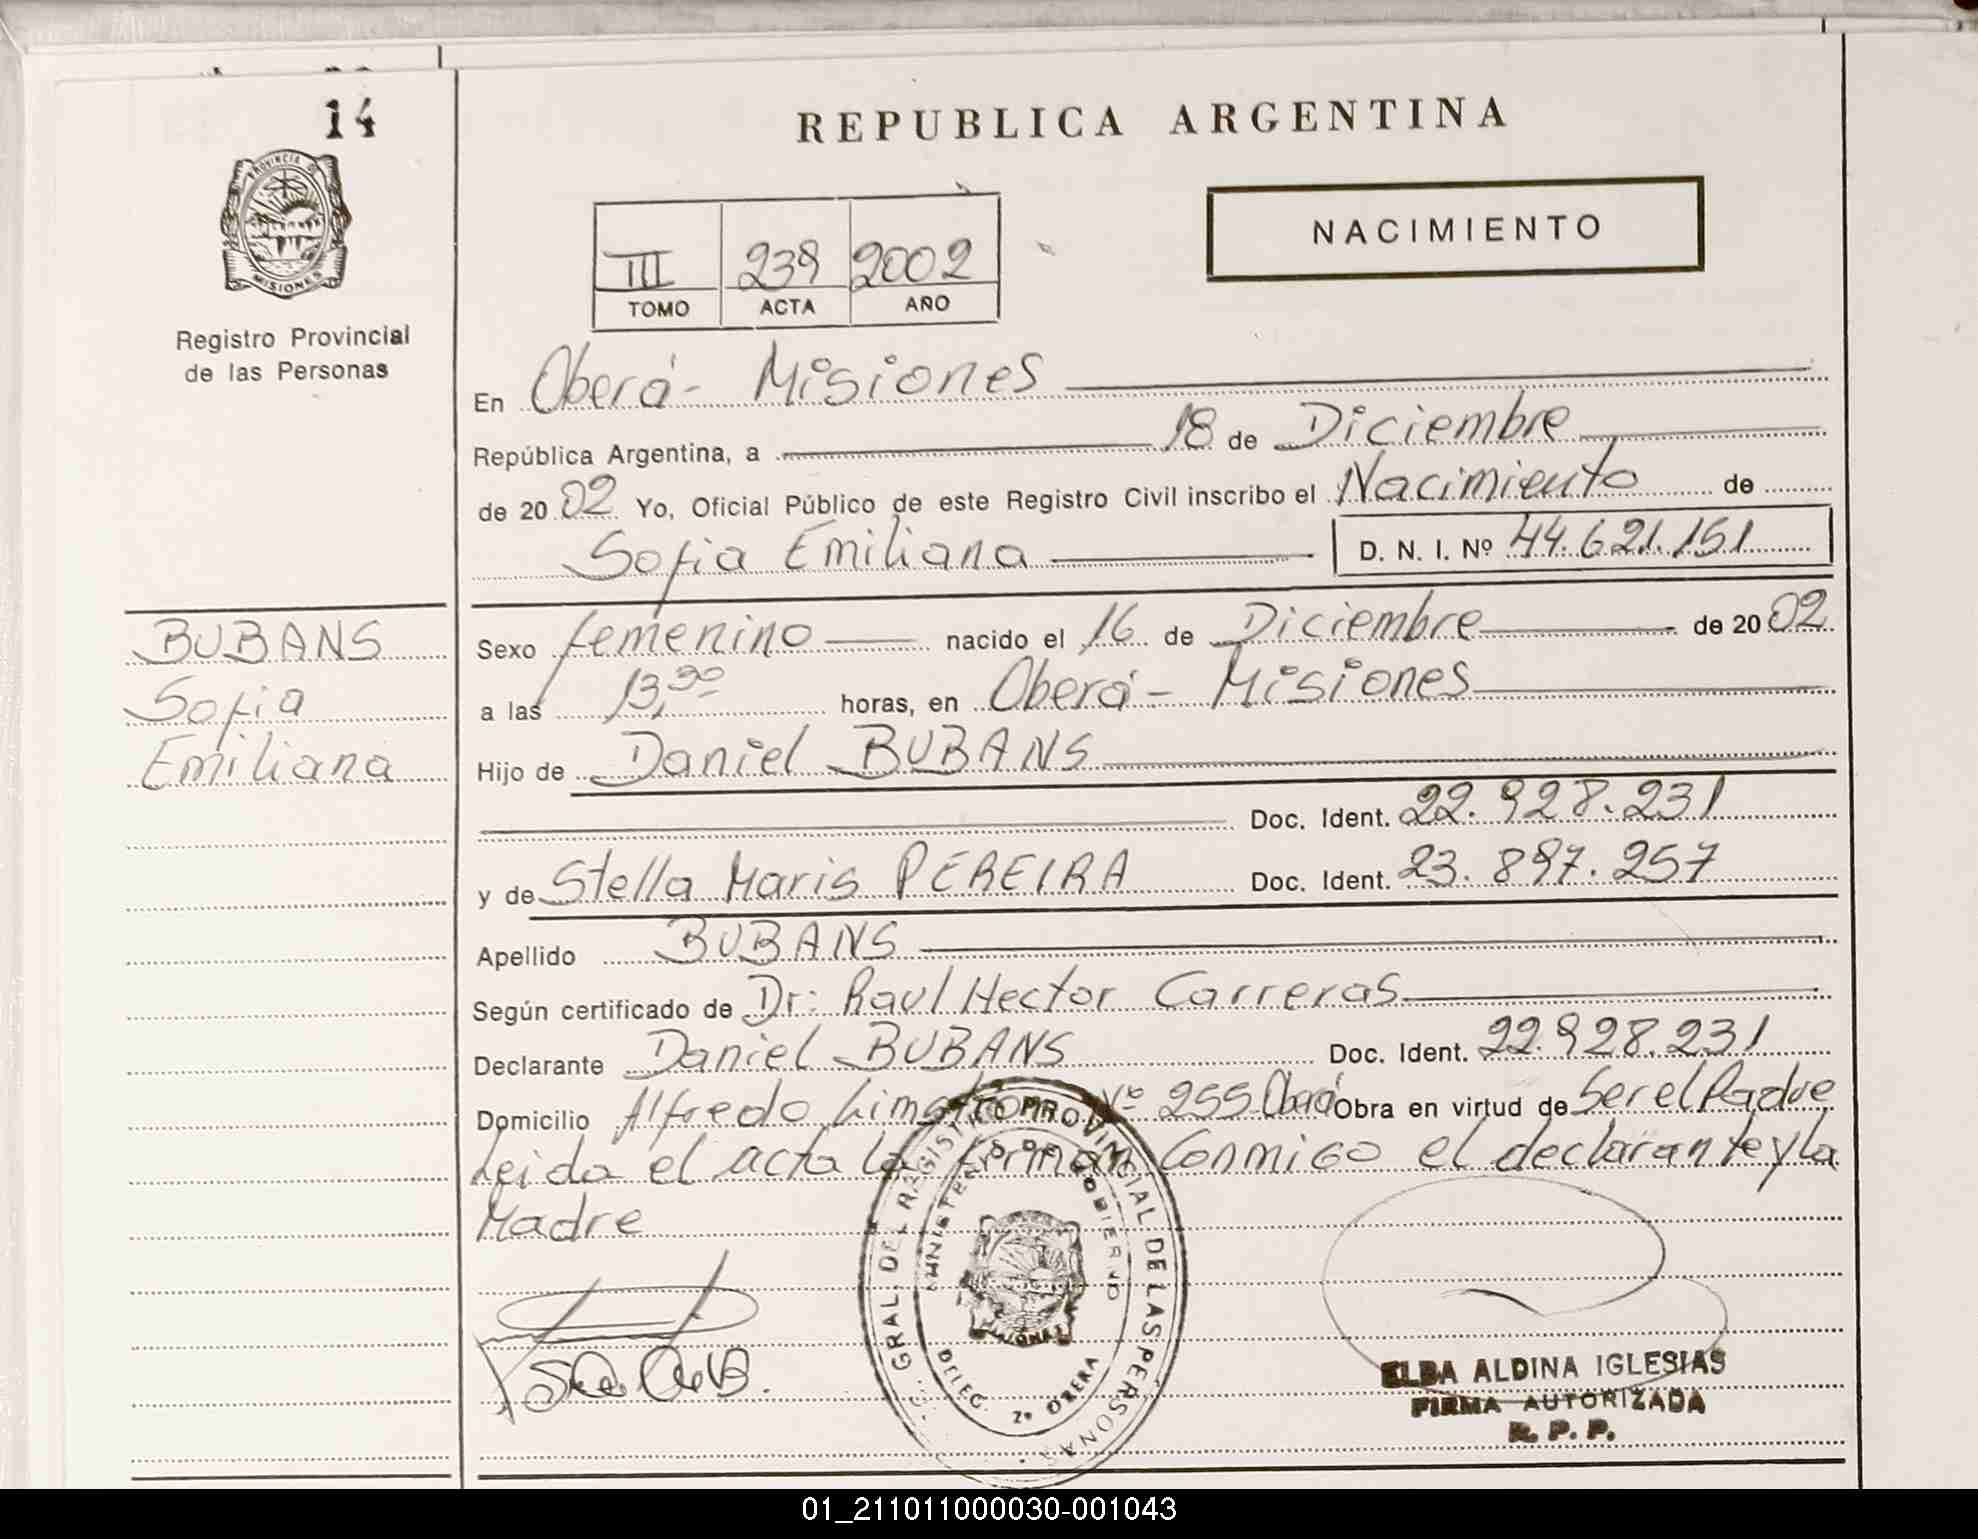 14
REPUBLICA ARGENTINA
PROVINCIA D
MISIONES
Registro Provincial
de las Personas
III 239 2002
TOMO ACTA AÑO
NACIMIENTO
En Oberá - Misiones
República Argentina, a 18 de Diciembre
de 2002 Yo, Oficial Público de este Registro Civil inscribo el Nacimiento de
Sofia Emiliana D. N. I. Nº 44.621.151
BUBANS
Sofia
Emiliana
Sexo femenino nacido el 16 de Diciembre de 2002
a las 13,30 horas, en Oberá - Misiones
Hijo de Daniel BUBANS
Doc. Ident. 22.928.231
y de Stella Maris PEREIRA Doc. Ident. 23.897.257
Apellido BUBANS
Según certificado de Dr: Raul Hector Carreras
Declarante Daniel BUBANS Doc. Ident. 22.928.231
Domicilio Alfredo Nº 255 Oberá Obra en virtud de Ser el Padre
Leida el acta la firman Conmigo el declarante y la
Madre
GRAL. DEL REGISTRO PROVINCIAL DE LAS PERSONAS
MINISTERIO DE GOBIERNO
DELEG. 2º OBERA
ELBA ALDINA IGLESIAS
FIRMA AUTORIZADA
R. P. P.
01_211011000030-001043